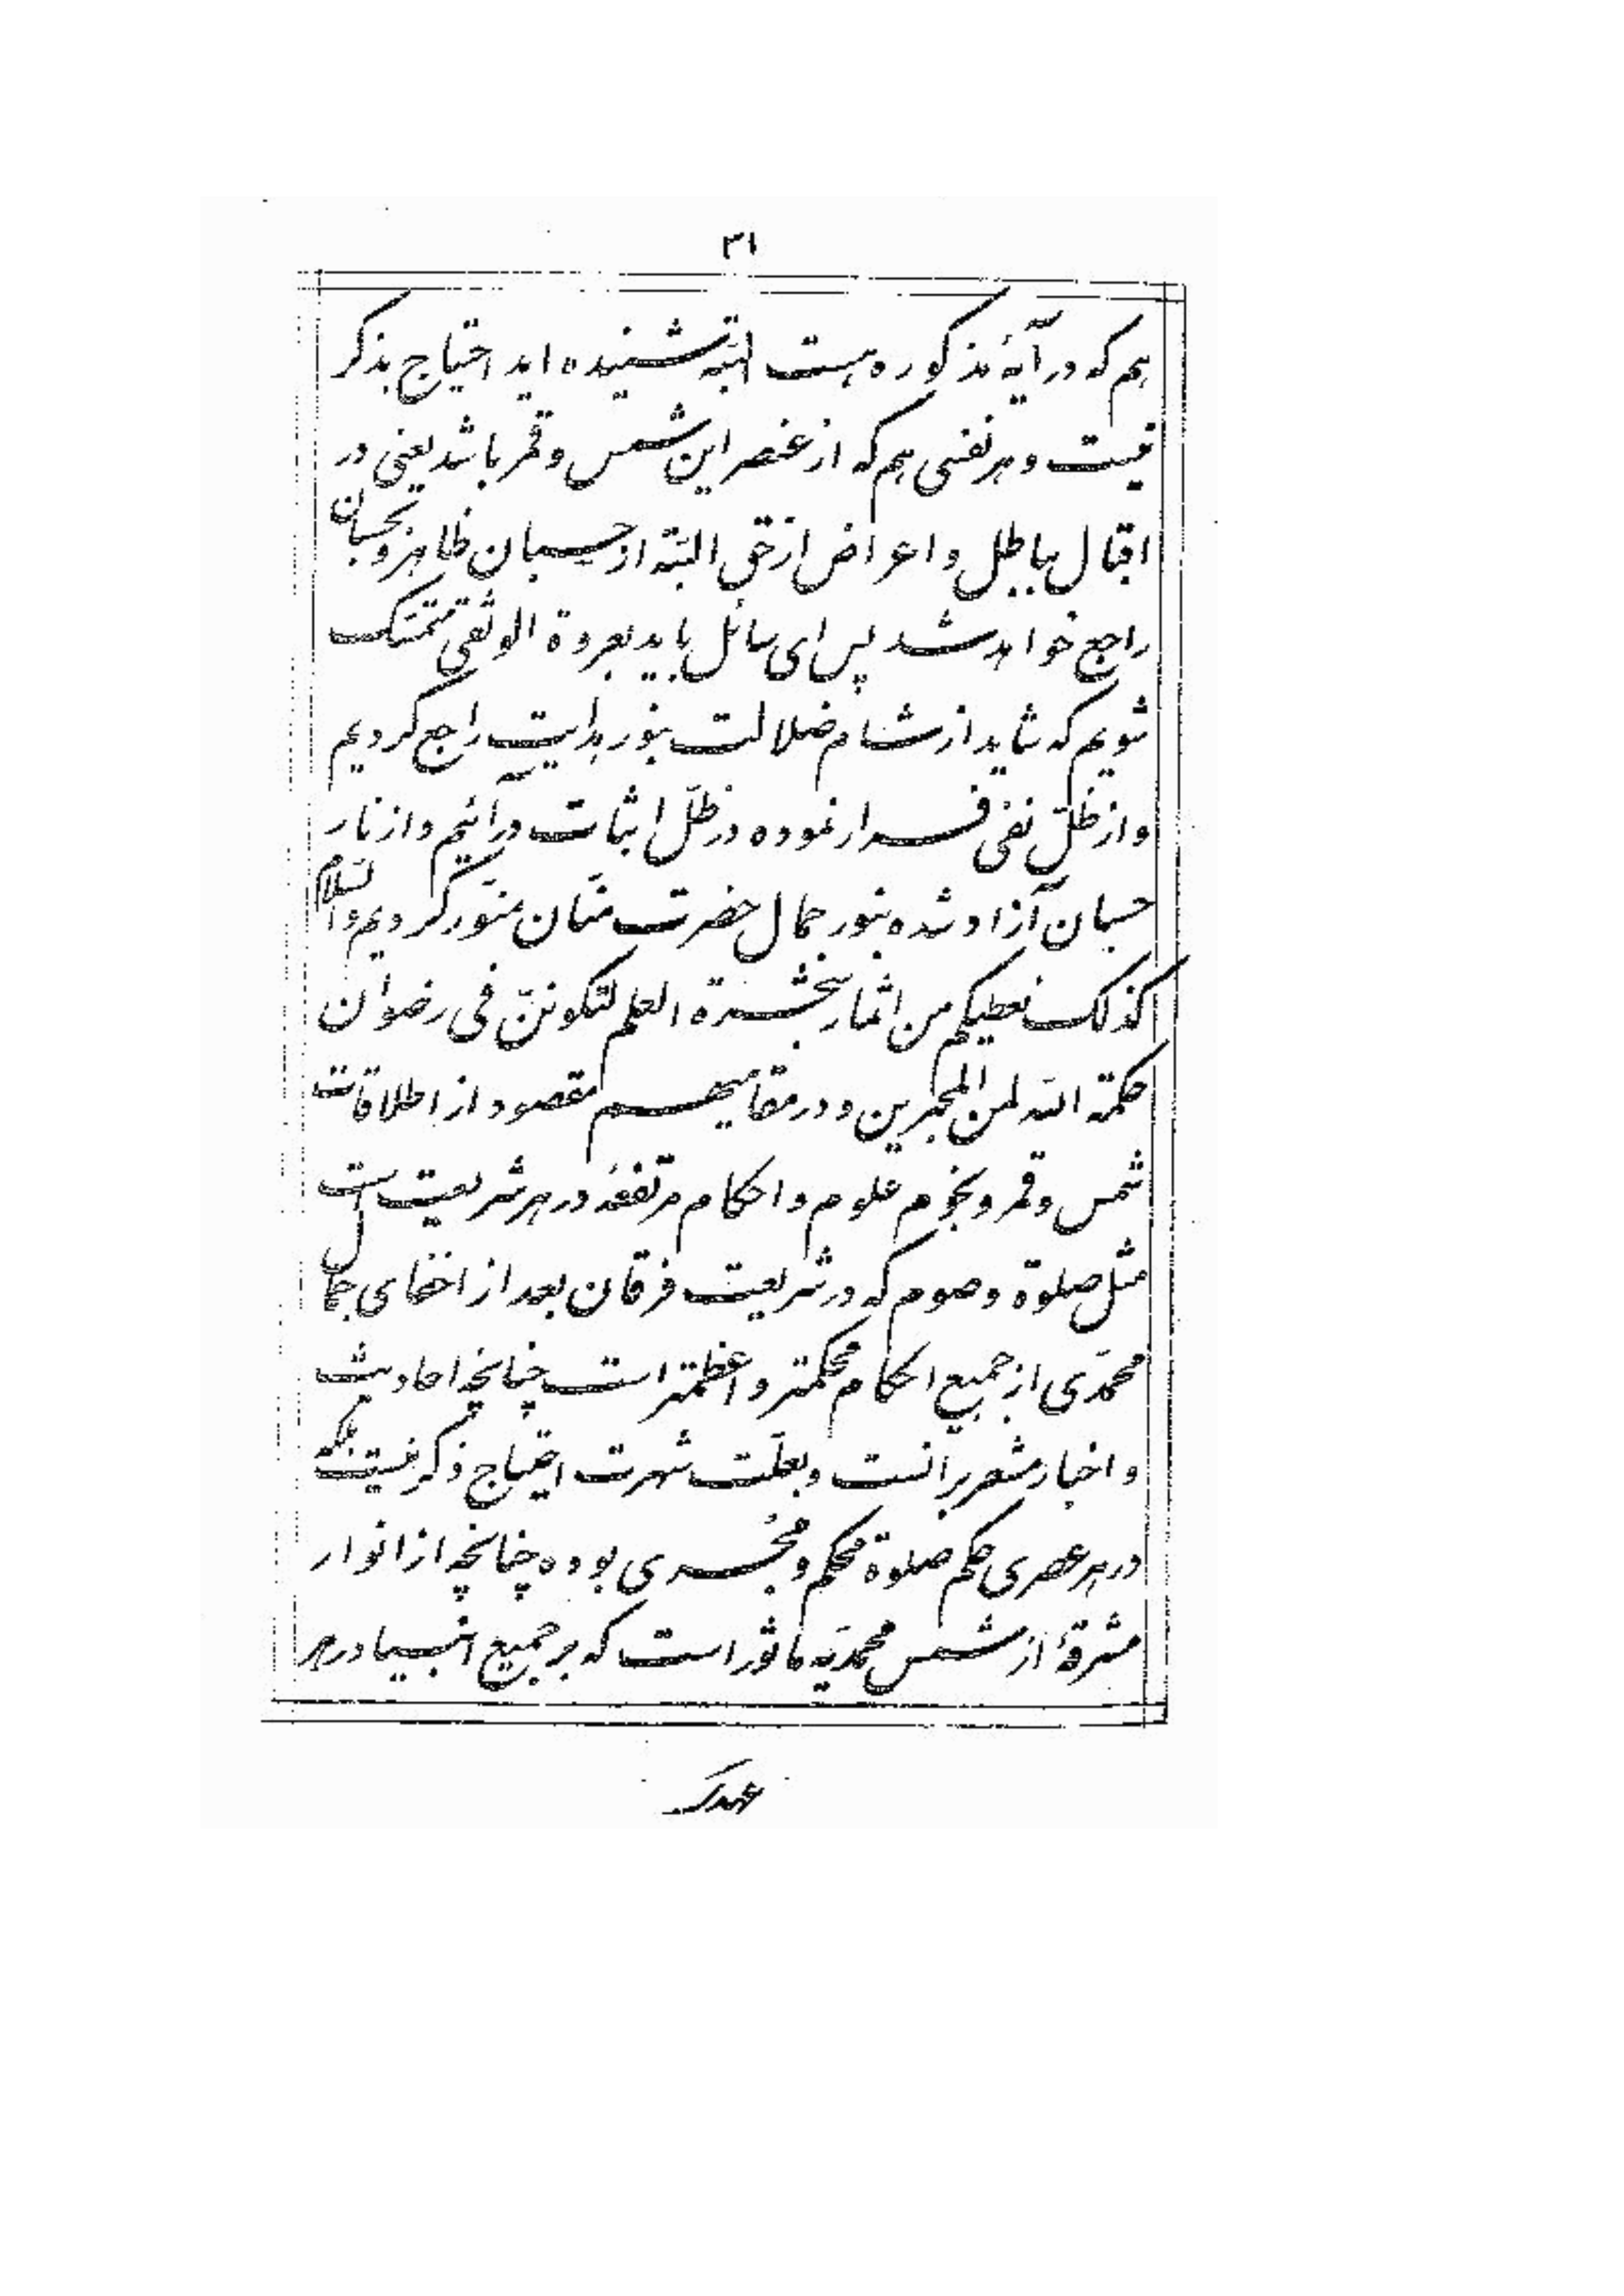 ۳۱
هم که در آیهٔ مذکوره هست البتّه شنیده اید احتیاج بذکر
نیست و هر نفسی هم که از عنصر این شمس و قمر باشد یعنی در
اقبال بباطل و اعراض از حق البتّه از حسبان ظاهر و بحسبان
راجع خواهد شد پس ای سائل باید بعروة الوثقی متمسّک
شویم که شاید از شام ضلالت بنور هدایت راجع گردیم
و از ظلّ نفی فرار نموده در ظلّ اثبات درآئیم و از نار
حسبان آزاد شده بنور جمال حضرت منّان منوّر گردیم والسّلام
کذلک نعطیکم من اثمار شجرة العلم لتکوننّ فی رضوان
حکمة اللّه لمن المحبرین و در مقامیهم مقصود از اطلاقات
شمس و قمر و نجوم علوم و احکام مرتفعه در هر شریعت است
مثل صلوة و صوم که در شریعت فرقان بعد از اخفای جمال
محمّدی از جمیع احکام محکمتر و اعظمتر است چنانچه احادیث
و اخبار مشعر برانست و بعلّت شهرت احتیاج ذکر نیست بلکه
در هر عصری حکم صلوة محکم و مجری بوده چنانچه از انوار
مشرقهٔ از شمس محمّدیّه ماثور است که بر جمیع انبیا در هر
عهدی